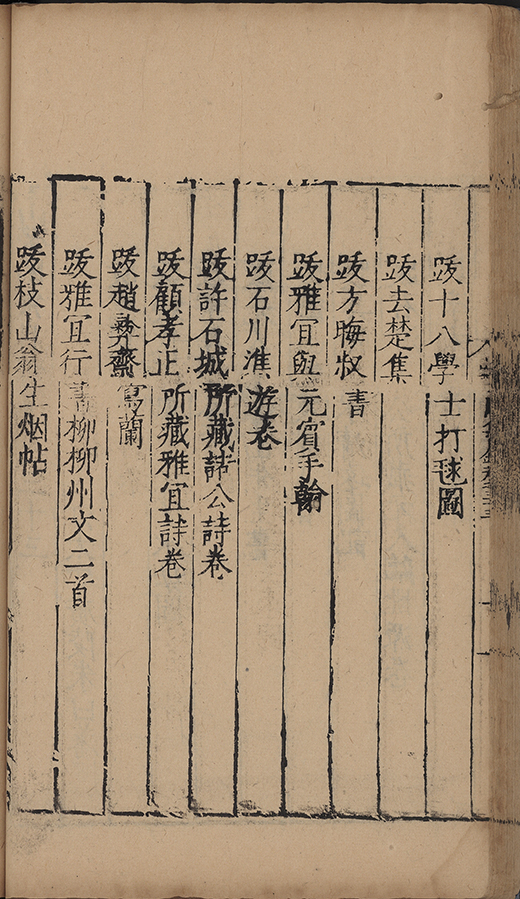 跋十八學士打毬圖
跋去楚集
跋方晦叔書
跋雅宜與元賓手翰
跋石川漁遊卷
跋許石城所藏諸公詩卷
跋顧孝正所藏雅宜詩卷
跋趙彝齋寫蘭
跋雅宜行書柳柳州文二首
跋枝山翁生烟帖